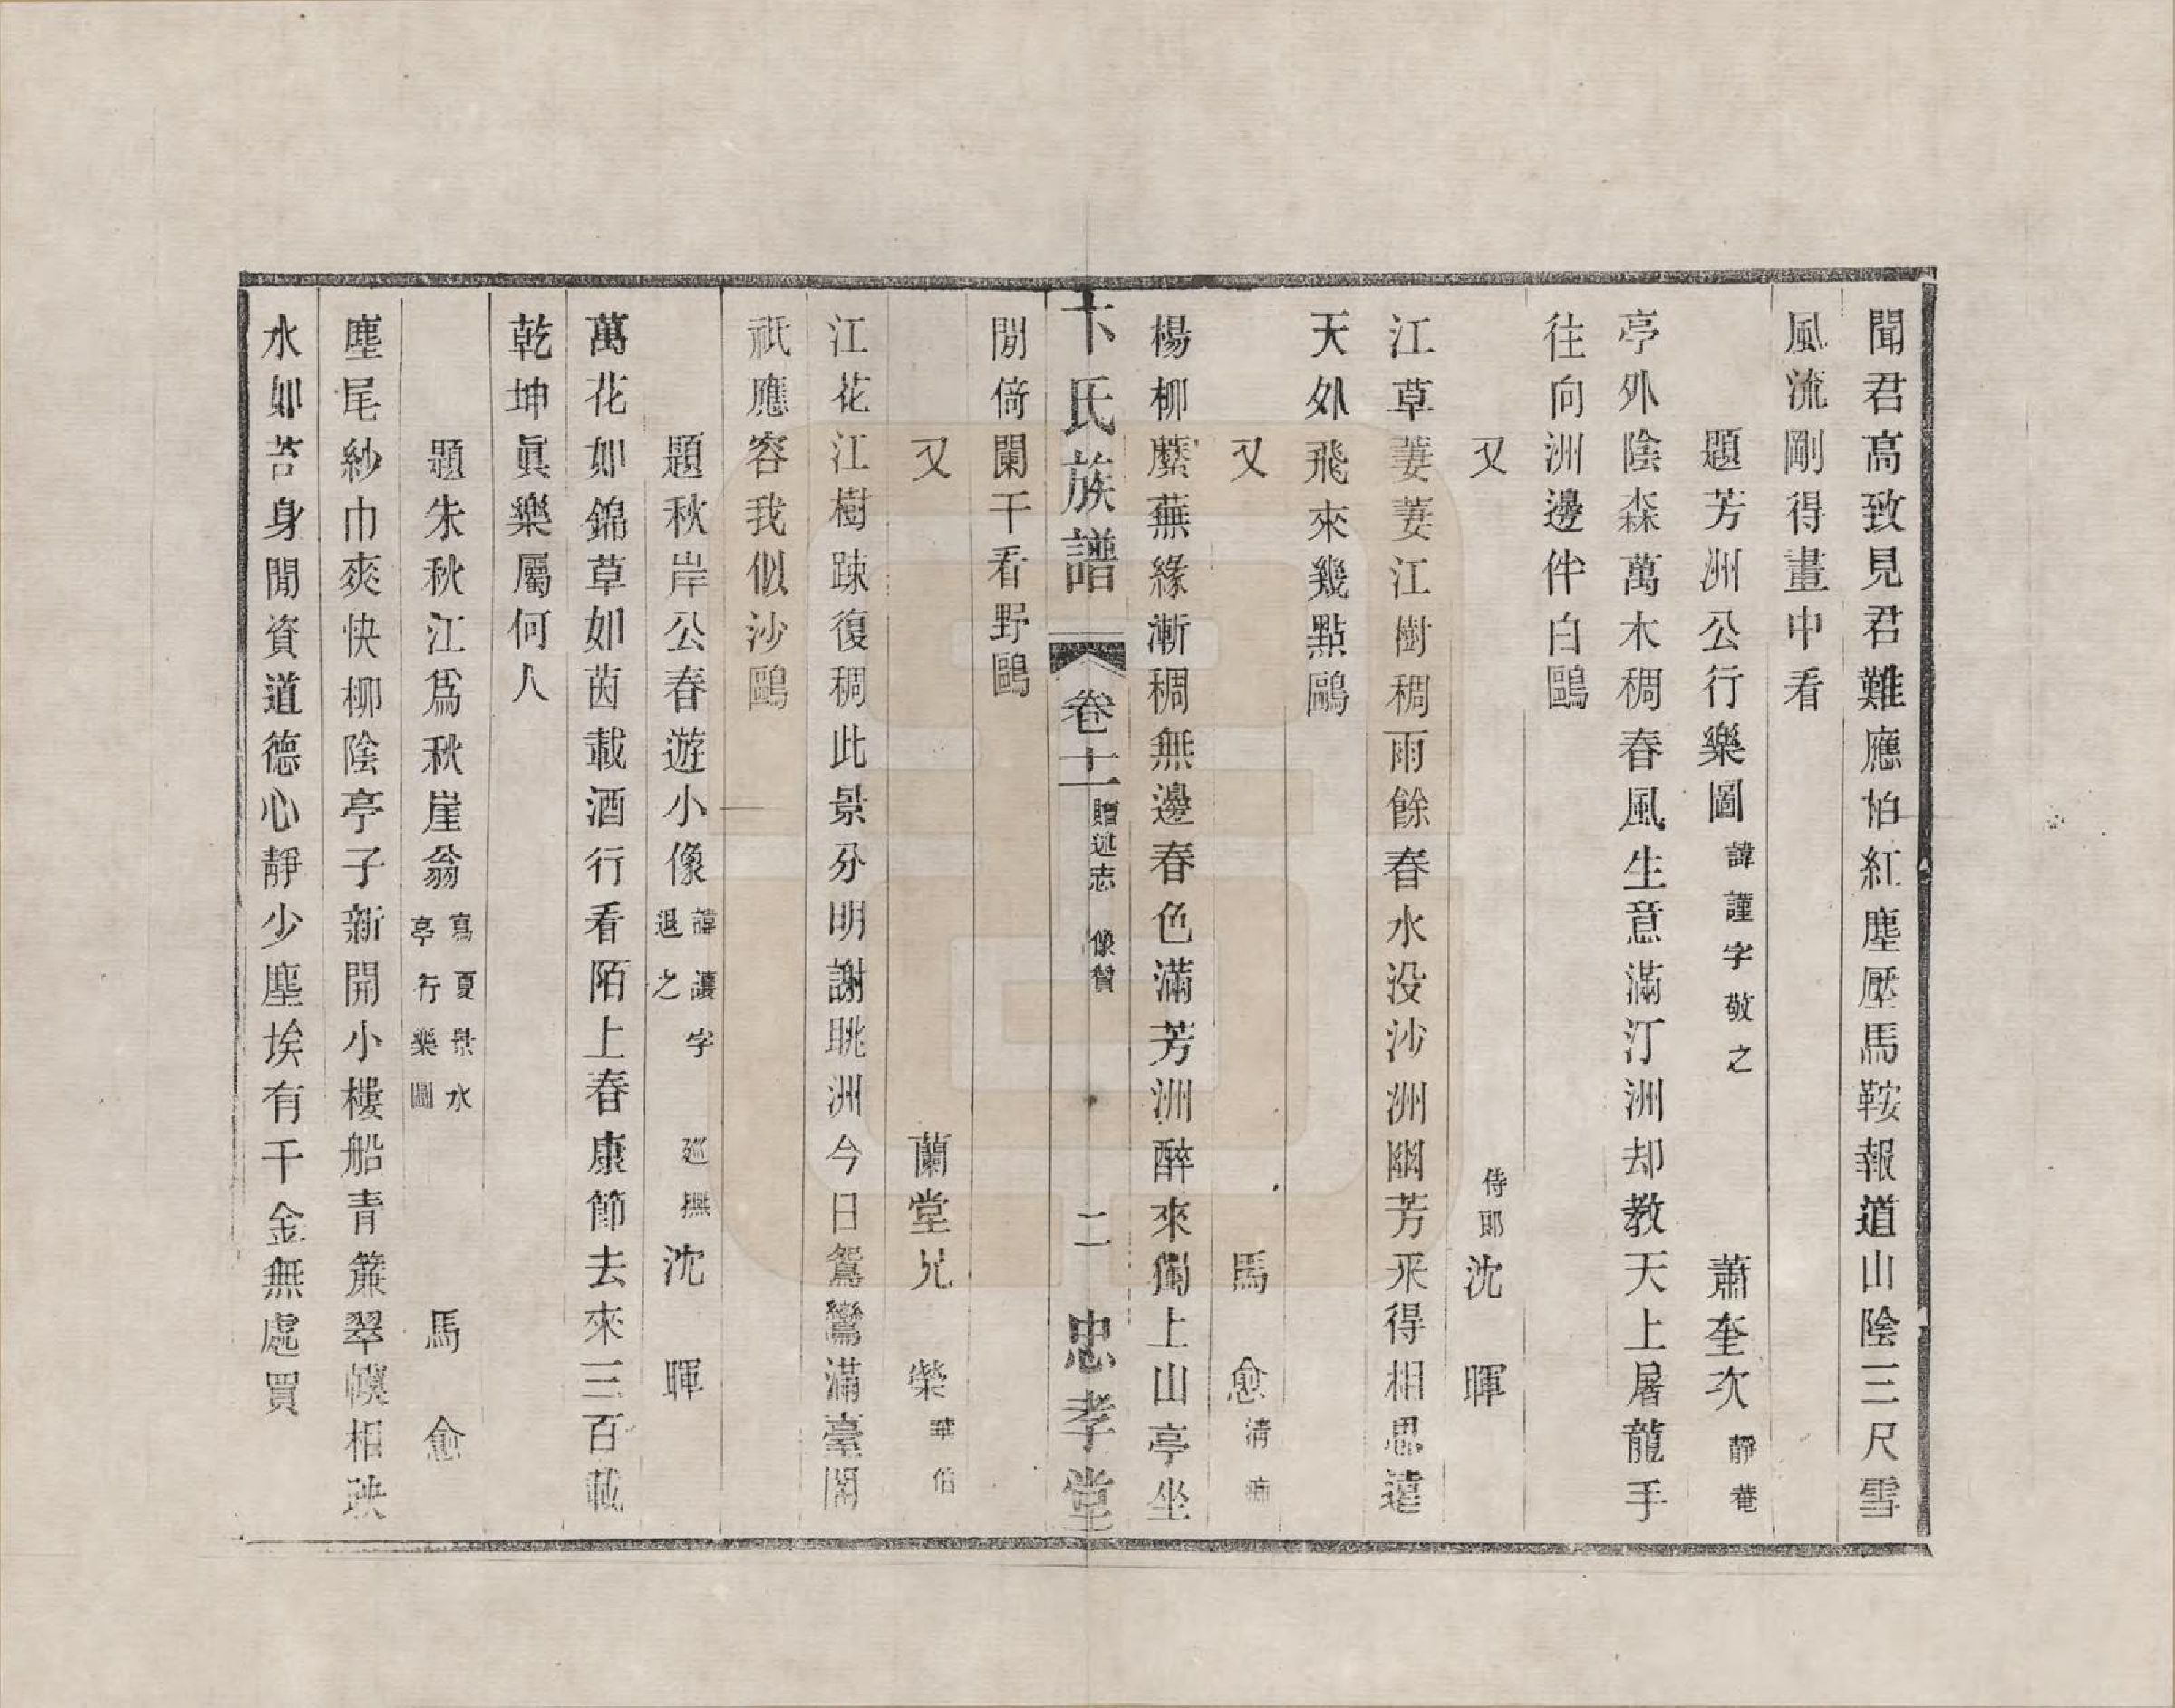 聞君高致見君難應怕紅塵壓馬鞍報道山陰三尺雪
風流剛得畫中看
題芳洲公行樂圖 諱謹字敬之 蕭奎次 靜菴
亭外陰森萬木稠春風生意滿汀洲却教天上屠龍手
往向洲邊伴白鷗
又 侍郎 沈暉
江草萋萋江樹稠雨餘春水没沙洲幽芳采得相思遠
天外飛來幾點鷗
又 馬愈 清癡
楊柳蘼蕪緣漸稠無邊春色滿芳洲醉來獨上山亭坐
閒倚闌干看野鷗
卞氏族譜 卷十一 贈述志 像贊 二 忠孝堂
又 蘭堂兄榮 華伯
江花江樹踈復稠此景分明謝眺洲今日鴛鸞滿臺閣
祇應容我似沙鷗
題秋岸公春遊小像 諱讓字退之 巡撫 沈暉
萬花如錦草如茵載酒行看陌上春康節去來三百載
乾坤眞樂屬何人
題朱秋江爲秋崖翁 寫夏景水亭行樂圖 馬愈
塵尾紗巾爽快柳陰亭子新開小樓船青簾翠幙相映
水如苔身閒資道德心靜少塵埃有千金無處買